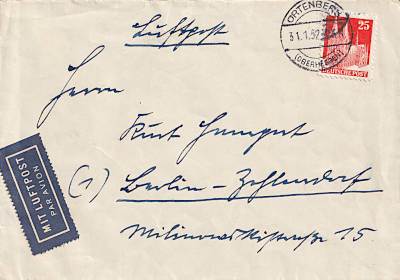 Luftpost
ORTENBERG
31.1.52
(OBERHESSEN)
25
DEUTSCHE POST
Herrn
Kurt
(1) Berlin-Zehlendorf
15
MIT LUFTPOST
PAR AVION